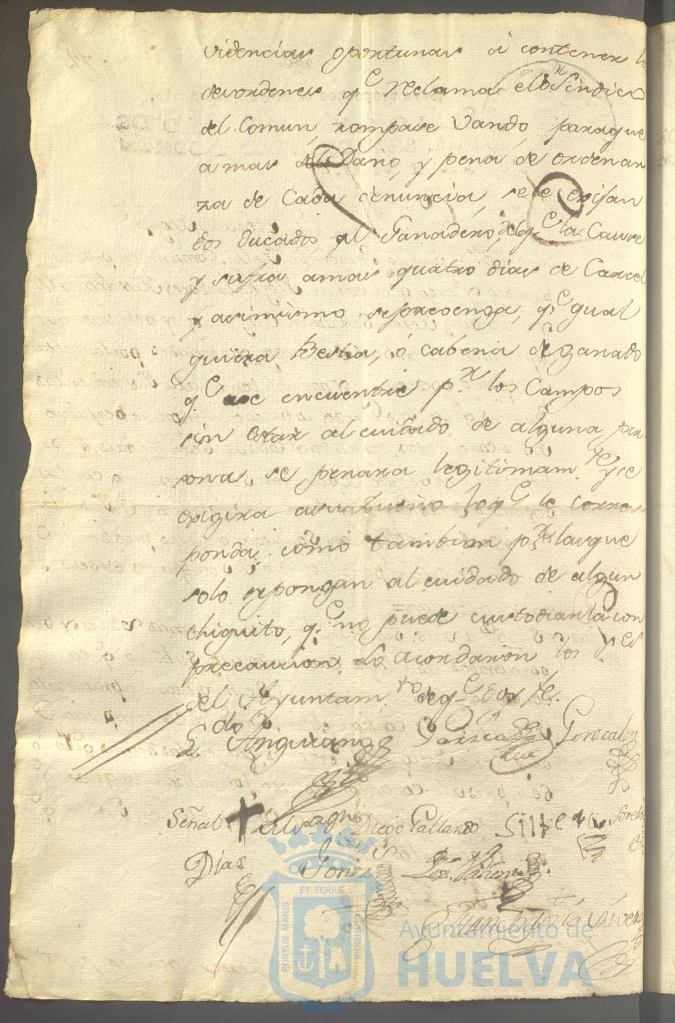 videncias oportunas a contener l
desordenes q.e reclama el Sindico
del Comun, rompase Vando, para que
a mas del Daño, y pena de ordenan
za de Cada denuncia, se le exijan
dos ducados al Ganadero, q.e la Cause
y sufra amas quatro dias de Carcel
y asimismo se prevenga, q.e qual
quiera Bestia, ó cabeza de ganado
q.e se encuentre p.r los Campos
sin estar al cuidado de alguna per
sona se penara legitimam.te y se
exigira a su Dueño lo q.e le corres
ponda como tambien p.r las que
solo se pongan al cuidado de algun
chiquito, q.e no puede custodiarla con
precaucion. Lo acordaron los S.res
del Ayuntam.to de q.e doy fe.
L.do Anguiano Garcia Gonzalez
Señal + Diego Gallardo
Dias
PORTUS MARIS ET TERRAE CUSTODIA
Ayuntamiento de
HUELVA